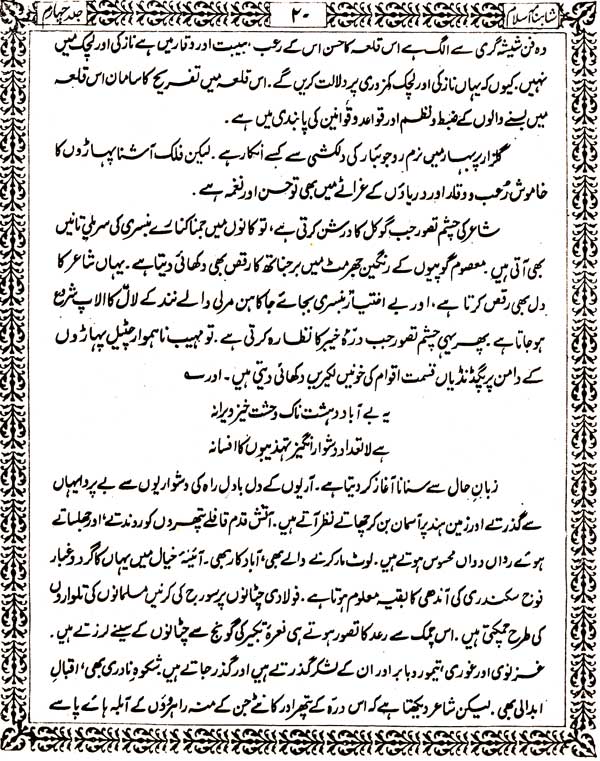 شاہنامۂ اسلام ۲۰ جلد چہارم
وہ فن شیشہ گری سے الگ ہے اس قلعہ کا حسن اس کے رعب، ہیبت اور وقار میں ہے نازکی اور لچک میں
نہیں۔ کیوں کہ یہاں نازکی اور لچک کمزوری پر دلالت کریں گے۔ اس قلعہ میں تفریح کا سامان اس قلعہ
میں بسنے والوں کے ضبط و نظم اور قواعد و قوانین کی پابندی میں ہے۔
گلزار پر بہار میں نرم رو جوئبار کی دلکشی سے کسے انکار ہے۔ لیکن فلک آشنا پہاڑوں کا
خاموش رعب و وقار اور دریاؤں کے غراٹے میں بھی تو حسن اور نغمہ ہے۔
شاعر کی چشم تصور جب گوکل کا درشن کرتی ہے، تو کانوں میں جمنا کنارے بنسری کی سریلی تانیں
بھی آتی ہیں۔ معصوم گوپیوں کے رنگین جھرمٹ میں برجناتھ کا رقص بھی دکھائی دیتا ہے۔ یہاں شاعر کا
دل بھی رقص کرتا ہے، اور بے اختیار بنسری بجائے جا کاہن مرلی والے نند کے لال کا الاپ شروع
ہو جاتا ہے۔ پھر یہی چشم تصور جب درۂ خیبر کا نظارہ کرتی ہے۔ تو مہیب ناہموار چٹیل پہاڑوں
کے دامن پر پگڈنڈیاں قسمت اقوام کی خونیں لکیریں دکھائی دیتی ہیں۔ اور ؎
یہ بے آباد دہشت ناک وحشت خیز ویرانہ
ہے لاتعداد و شوار انگیز تہذیبوں کا افسانہ
زبانِ حال سے سنانا آغاز کر دیتا ہے۔ آریوں کے دل بادل راہ کی دشواریوں سے بے پروا یہاں
سے گذرتے اور زمین ہند پر آسمان بن کر چھاتے نظر آتے ہیں۔ آتش قدم قافلے پتھروں کو روندتے، اور جھلساتے
ہوئے رواں دواں محسوس ہوتے ہیں۔ لوٹ مار کرنے والے بھی، آباد کار بھی۔ آئینۂ خیال میں یہاں کا گرد و غبار
فوج سکندری کی آندھی کا نقیب معلوم ہوتا ہے۔ فولادی چٹانوں پر سورج کی کرنیں مسلمانوں کی تلواروں
کی طرح چمکتی ہیں۔ اس چمک سے رعد کا تصور ہوتے ہی نعرۂ تکبیر کی گونج سے چٹانوں کے سینے لرزتے ہیں۔
غزنوی اور غوری، تیمور و بابر اور ان کے لشکر گذرتے ہیں اور گذر جاتے ہیں۔ شکوہِ نادری بھی، اقبالِ
ابدالی بھی۔ لیکن شاعر دیکھتا ہے کہ اس درہ کے پتھر اور کانٹے جن کے منہ راہروؤں کے آبلہ ہائے پا سے